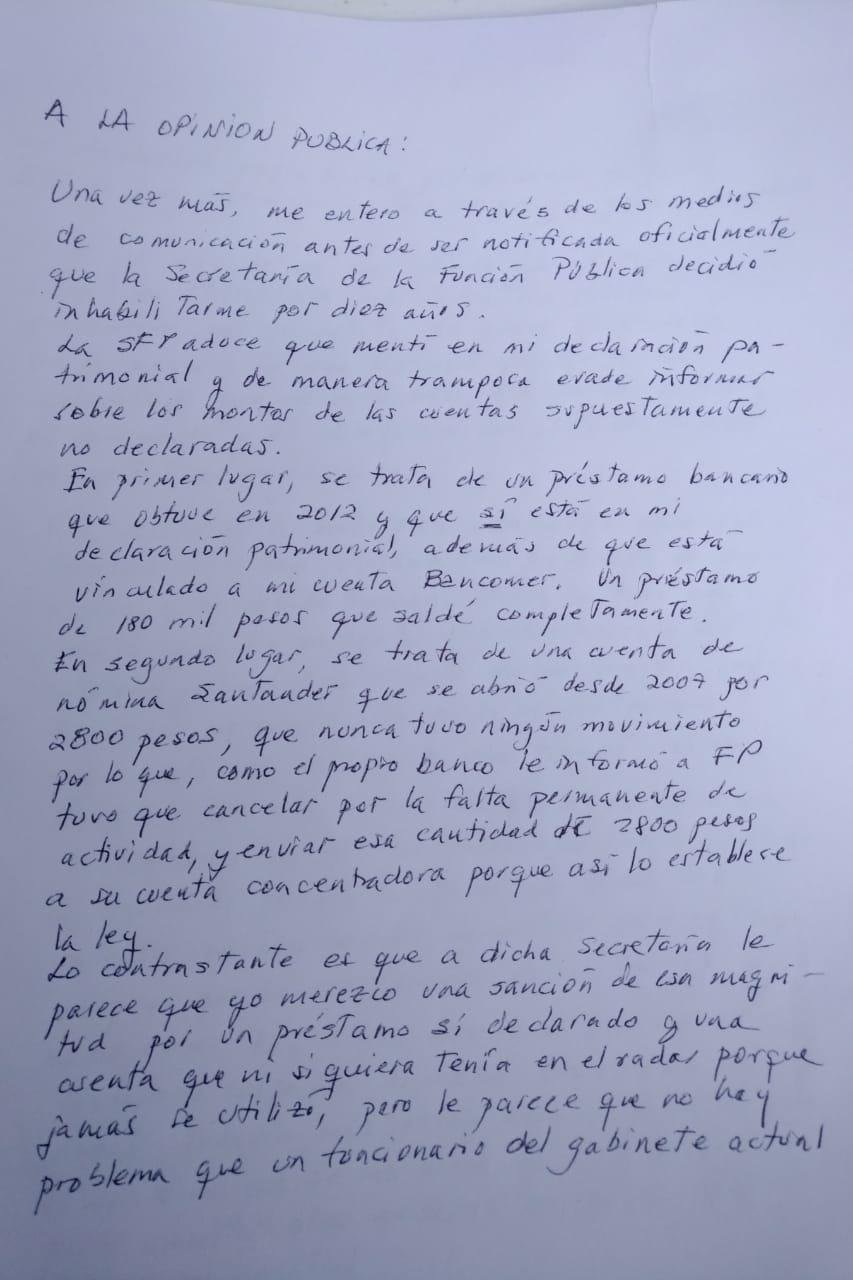 A LA OPINION PUBLICA:
Una vez más, me entero a través de los medios
de comunicación antes de ser notificada oficialmente
que la Secretaría de la Función Pública decidió
inhabilitarme por diez años.
La SFP aduce que mentí en mi declaración pa-
trimonial y de manera tramposa evade informar
sobre los montos de las cuentas supuestamente
no declaradas.
En primer lugar, se trata de un préstamo bancario
que obtuve en 2012 y que sí está en mi
declaración patrimonial, además de que está
vinculado a mi cuenta Bancomer. Un préstamo
de 180 mil pesos que saldé completamente.
En segundo lugar, se trata de una cuenta de
nómina Santander que se abrió desde 2007 por
2800 pesos, que nunca tuvo ningún movimiento
por lo que, como el propio banco le informó a FP
tuvo que cancelar por la falta permanente de
actividad, y enviar esa cantidad de 2800 pesos
a su cuenta concentradora porque así lo establece
la ley.
Lo contrastante es que a dicha Secretaría le
parece que yo merezco una sanción de esa magni-
tud por un préstamo sí declarado y una
cuenta que ni siquiera tenía en el radar porque
jamás se utilizó, pero le parece que no hay
problema que un funcionario del gabinete actual